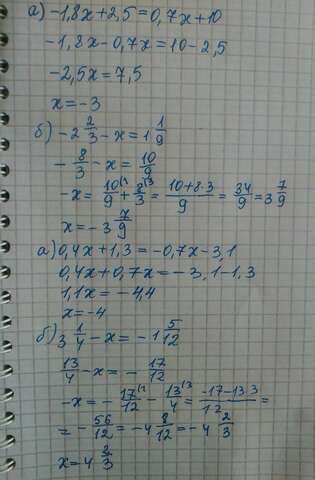 а) -1,8x+2,5=0,7x+10
-1,8x-0,7x=10-2,5
-2,5x=7,5
x=-3
б) -2 2/3 - x = 1 1/9
- 8/3 - x = 10/9
-x = 10/9 + 8/3 = (10+8·3)/9 = 34/9 = 3 7/9
x = -3 7/9
а) 0,4x+1,3=-0,7x-3,1
0,4x+0,7x=-3,1-1,3
1,1x=-4,4
x=-4
б) 3 1/4 - x = -1 5/12
13/4 - x = - 17/12
-x = - 17/12 - 13/4 = (-17-13·3)/12 =
= - 56/12 = -4 8/12 = -4 2/3
x=4 2/3